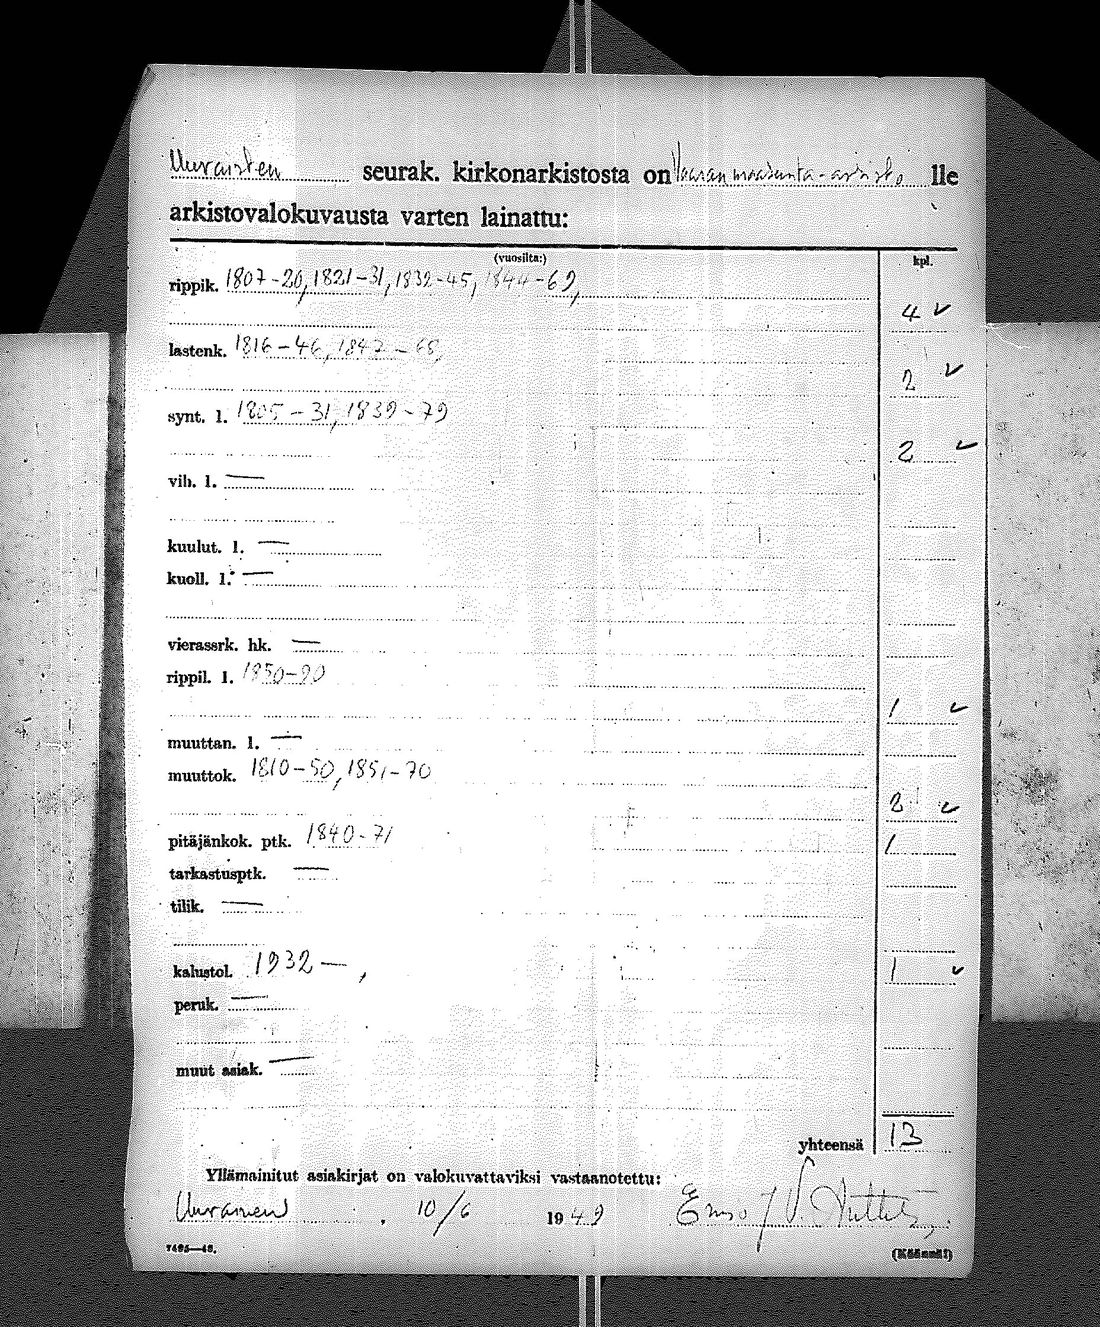 Uuraisten seurak. kirkonarkistosta on Vaasan maakunta-arkisto lle
arkistovalokuvausta varten lainattu:
(vuosilta:) kpl.
rippik. 1807-20, 1821-31, 1832-45, 1844-69,
4 ✓
lastenk. 1816-46, 1847-68,
2 ✓
synt. l. 1805-31, 1839-79
2 ✓
vih. l. —
kuulut. l. —
kuoll. l. —
vierassrk. hk. —
rippil. l. 1850-90
1 ✓
muuttan. l. —
muuttok. 1810-50, 1851-70
2 ✓
pitäjänkok. ptk. 1840-71 1
tarkastusptk. —
tilik. —
kalustol. 1932 — , 1 ✓
peruk. —
muut asiak. —
yhteensä 13
Yllämainitut asiakirjat on valokuvattaviksi vastaanotettu:
Uurainen , 10/6 1949
7495—48. (Käännä!)